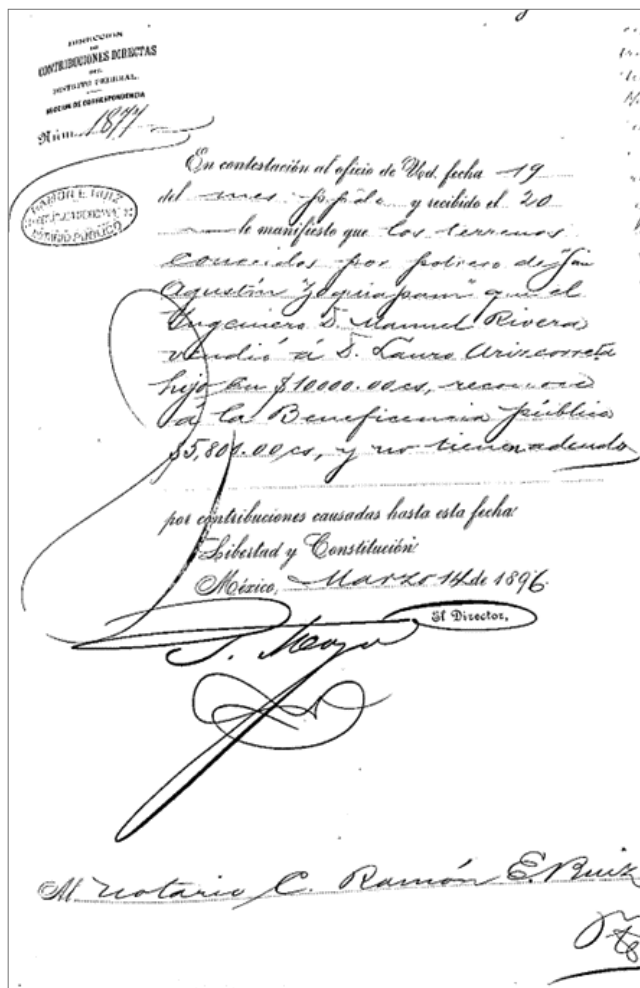 DIRECCION
DE
CONTRIBUCIONES DIRECTAS
DEL
DISTRITO FEDERAL.
SECCION DE CORRESPONDENCIA
Núm. 1877
RAMON E. RUIZ
NOTARIO PUBLICO
En contestación al oficio de Ud. fecha 19
del mes ppdo y recibido el 20
le manifiesto que los terrenos
conocidos por potrero de San
Agustín "Zoquiapam" que el
Ingeniero D. Manuel Rivera
vendió á D. Lauro Arizcorreta
hijo en $10000.00 cs, reconoce
a la Beneficencia pública
$5,800.00 cs, y no tienen adeudo
por contribuciones causadas hasta esta fecha.
Libertad y Constitución.
México, Marzo 14 de 1896
El Director,
Al notario C. Ramón E. Ruiz